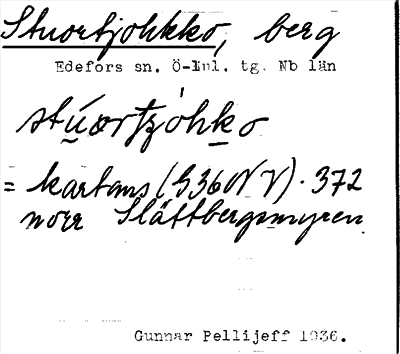 Stuortjohkko, berg
Edefors sn. Ö-Lul. tg. Nb län
stúortjohko
= kartans (G36NV). 372
norr Slättbergsmyren
Gunnar Pellijeff 1936.